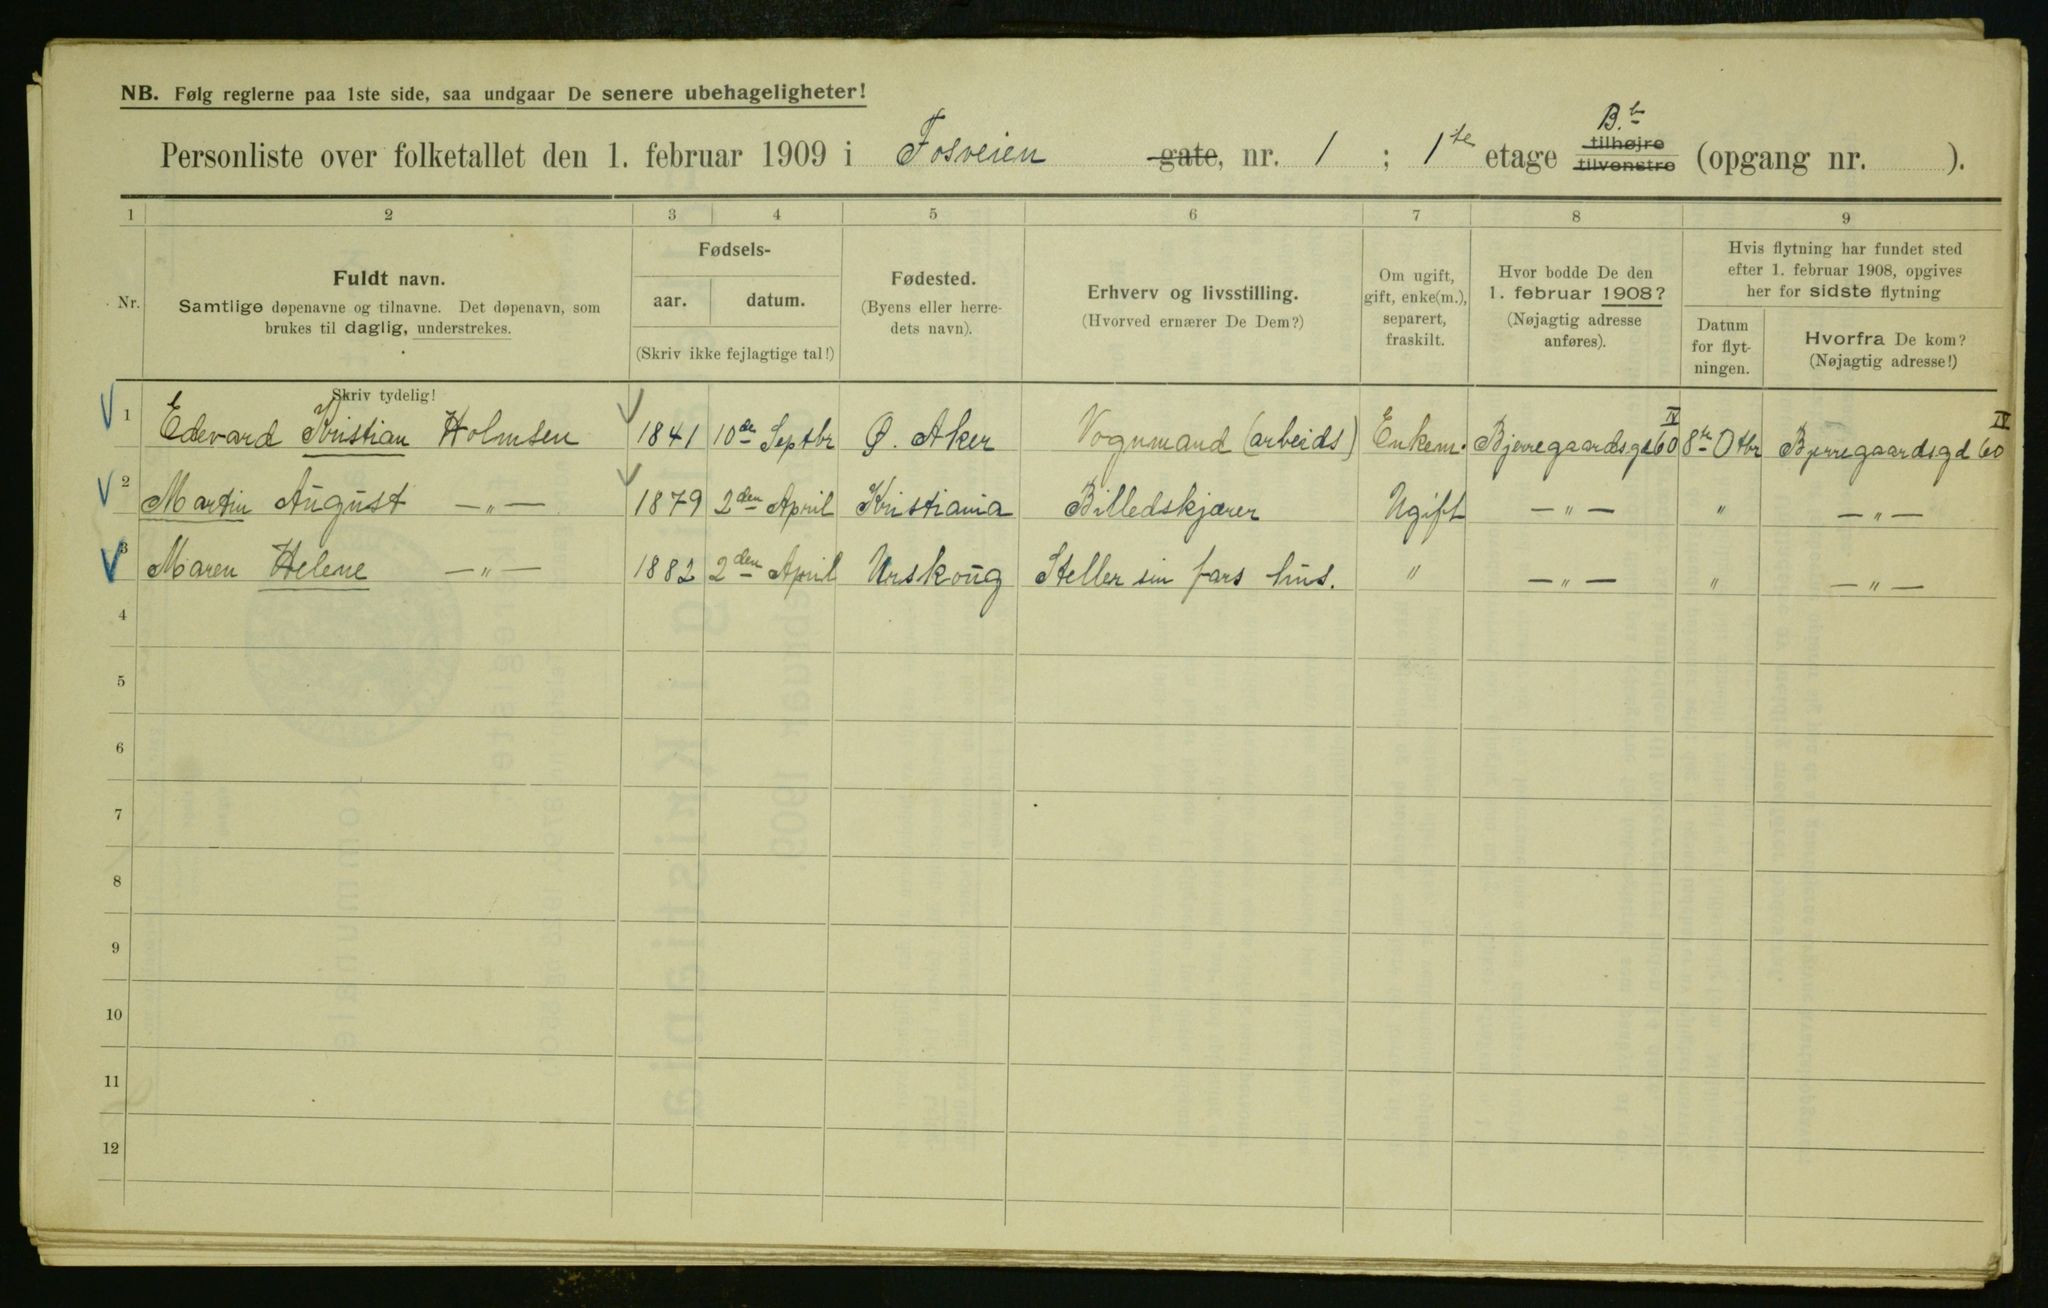 NB. Følg reglerne paa 1ste side, saa undgaar De senere ubehageligheter!
B.b
Personliste over folketallet den 1. februar 1909 i Fosveien gate, nr. 1 ; 1ste etage tilhøjre tilvenstre (opgang nr. ).
1 2 3 4 5 6 7 8 9
Nr.
Fuldt navn.
Samtlige døpenavne og tilnavne. Det døpenavn, som
brukes til daglig, understrekes.
Fødsels-
aar. datum.
(Skriv ikke fejlagtige tal!)
Fødested.
(Byens eller herre-
dets navn).
Erhverv og livsstilling.
(Hvorved ernærer De Dem?)
Om ugift,
gift, enke(m.),
separert,
fraskilt.
Hvor bodde De den
1. februar 1908?
(Nøjagtig adresse
anføres).
Hvis flytning har fundet sted
efter 1. februar 1908, opgives
her for sidste flytning
Datum
for flyt-
ningen.
Hvorfra De kom?
(Nøjagtig adresse!)
Skriv tydelig!
1 Edevard Kristian Holmsen 1841 10de Septbr Ø. Aker Vognmand (arbeids) Enkem. Bjerregaardsgd 60 IV 8de Otbr Bjerregaardsgd 60 IV
2 Martin August —„— 1879 2den April Kristiania Billedskjærer Ugift —„— „ —„—
3 Maren Helene —„— 1882 2den April Urskoug Steller sin fars hus. „ —„— „ —„—
4
5
6
7
8
9
10
11
12